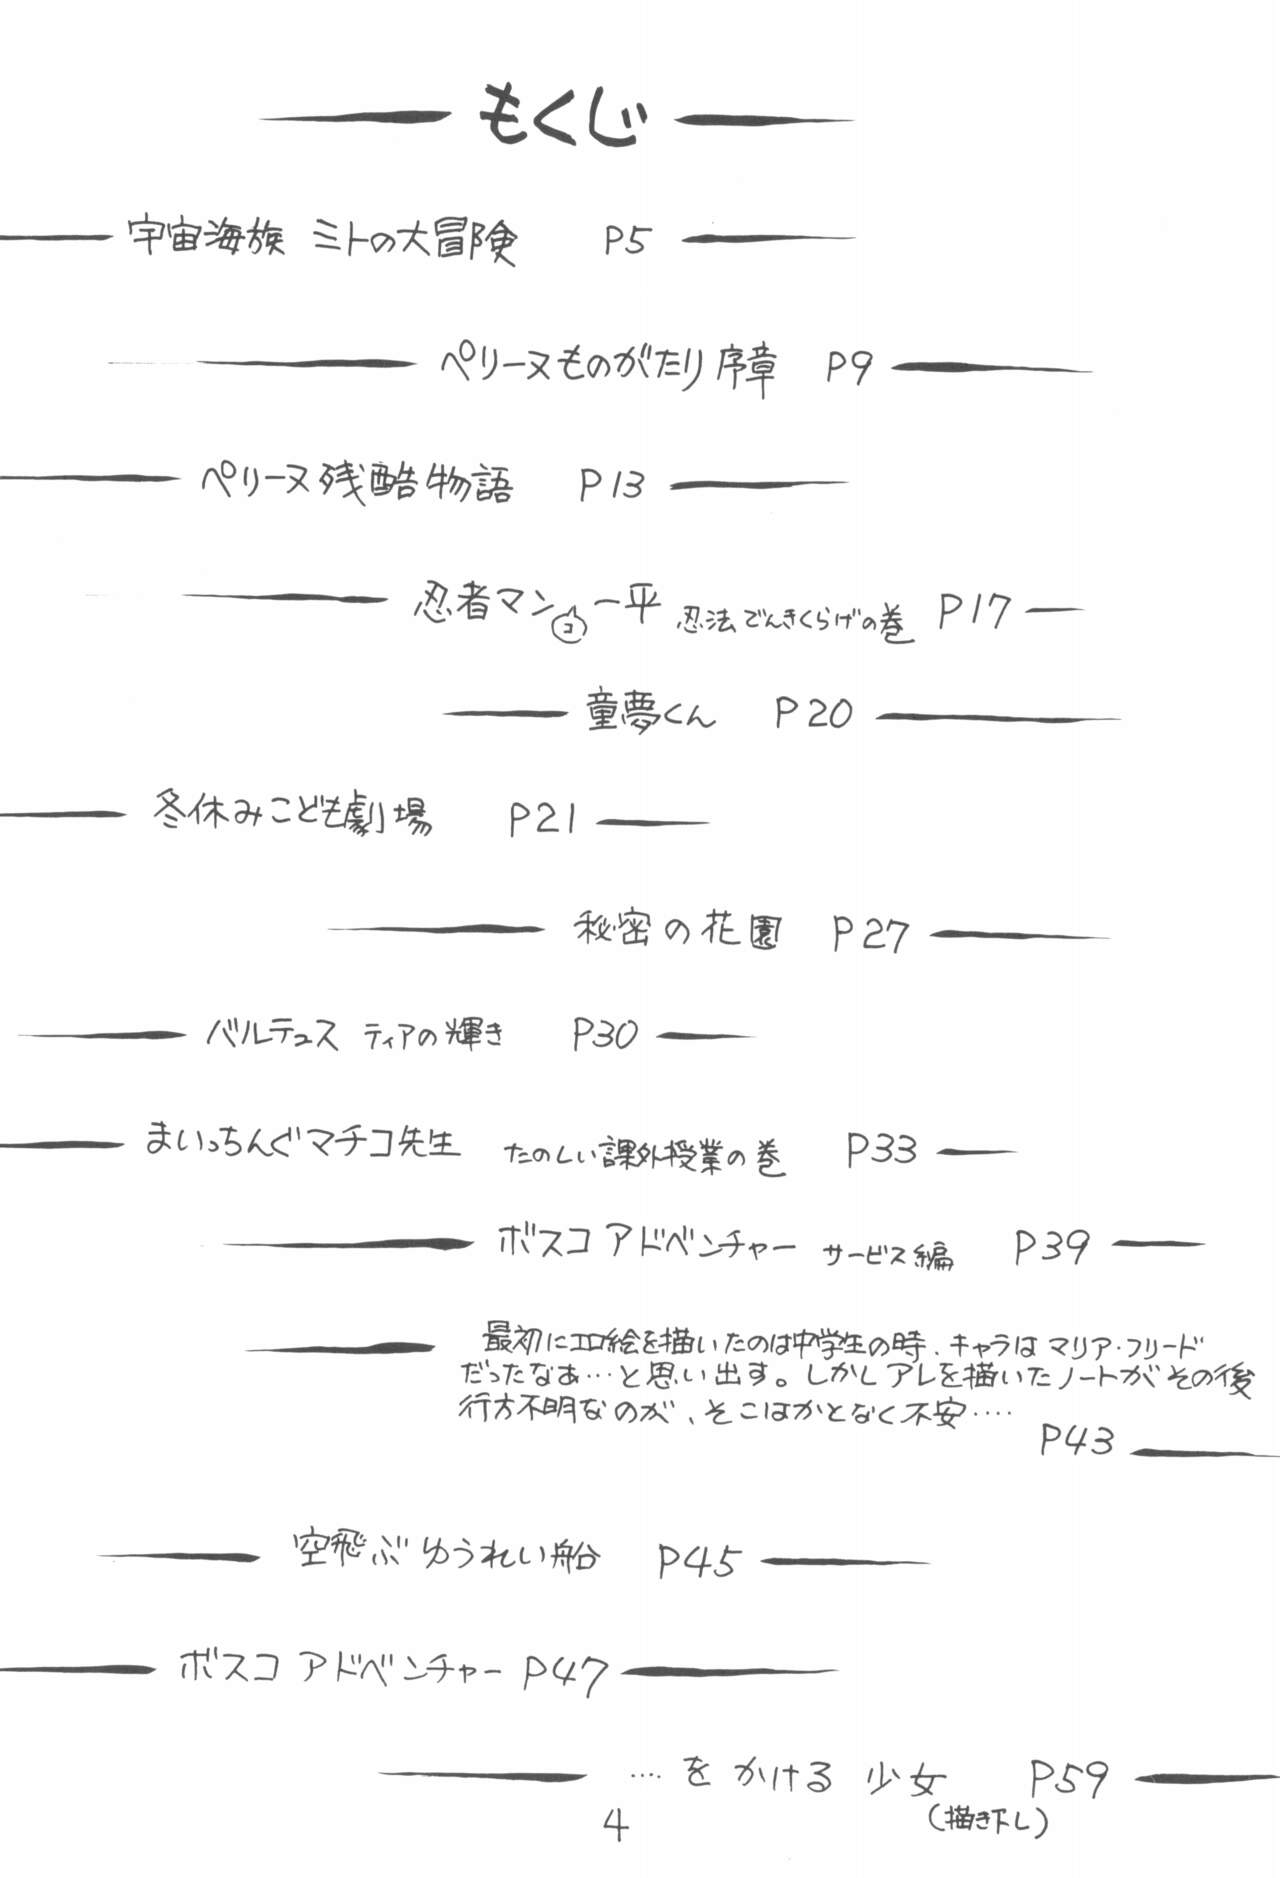 もくじ
宇宙海族 ミトの大冒険 P5
ペリーヌものがたり序章 P9
ペリーヌ残酷物語 P13
忍者マン㋙一平 忍法でんきくらげの巻 P17
童夢くん P20
冬休みこども劇場 P21
秘密の花園 P27
バルテュス ティアの輝き P30
まいっちんぐマチコ先生 たのしい課外授業の巻 P33
ボスコアドベンチャー サービス編 P39
最初にエロ絵を描いたのは中学生の時、キャラはマリア・フリード
だったなあ…と思い出す。しかしアレを描いたノートがその後
行方不明なのが、そこはかとなく不安‥‥
P43
空飛ぶゆうれい船 P45
ボスコアドベンチャー P47
‥‥をかける少女 P59
(描き下し)
4